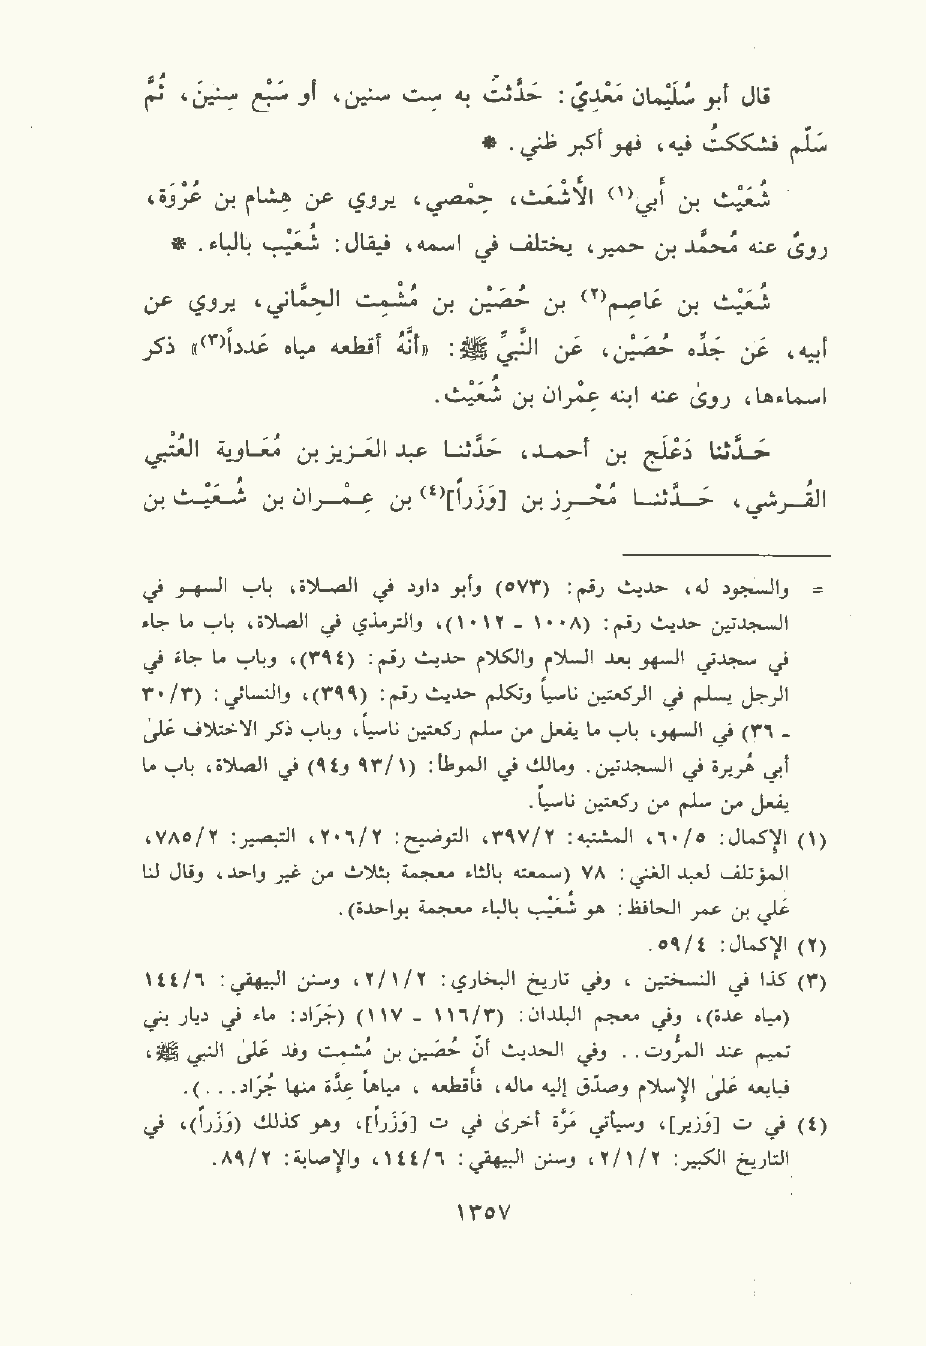 قال أبو سُلَيْمان مَعْدِيّ: حَدَّثتُ به ست سنين، أو سَبْع سِنينَ، ثُمَّ
سَلَّم فشككتُ فيه، فهو أكبر ظني. *
شُعَيْث بن أبي(١) الأَشْعَث، حِمْصي، يروي عن هِشام بن عُرْوَة،
روى عنه مُحمَّد بن حمير، يختلف في اسمه، فيقال: شُعَيْب بالباء. *
شُعَيْث بن عَاصِم(٢) بن حُصَيْن بن مُشْمِت الحِمَّاني، يروي عن
أبيه، عَن جَدِّه حُصَيْن، عَن النَّبيِّ ﷺ: «أنَّهُ أقطعه مياه عَدداً(٣)» ذكر
اسماءها، روى عنه ابنه عِمْران بن شُعَيْث.
حَدَّثنا دَعْلَج بن أحمد، حَدَّثنا عبد العَزيز بن مُعَاوية العُتْبي
القُرشي، حَدَّثنا مُحْرِز بن [وَزَراً](٤) بن عِمْران بن شُعَيْث بن
= والسجود له، حديث رقم: (٥٧٣) وأبو داود في الصلاة، باب السهو في
السجدتين حديث رقم: (١٠٠٨ - ١٠١٢)، والترمذي في الصلاة، باب ما جاء
في سجدتي السهو بعد السلام والكلام حديث رقم: (٣٩٤)، وباب ما جاء في
الرجل يسلم في الركعتين ناسياً وتكلم حديث رقم: (٣٩٩)، والنسائي: (٣/ ٣٠
- ٣٦) في السهو، باب ما يفعل من سلم من ركعتين ناسياً، وباب ذكر الاختلاف علىٰ
أبي هُريرة في السجدتين. ومالك في الموطأ: (١/ ٩٣ و٩٤) في الصلاة، باب ما
يفعل من سلم من ركعتين ناسياً.
(١) الإكمال: ٥/ ٦٠، المشتبه: ٢/ ٣٩٧، التوضيح: ٢/ ٢٠٦، التبصير: ٢/ ٧٨٥،
المؤتلف لعبد الغني: ٧٨ (سمعته بالثاء معجمة بثلاث من غير واحد، وقال لنا
علي بن عمر الحافظ: هو شُعَيْب بالباء معجمة بواحدة).
(٢) الإكمال: ٤/ ٥٩.
(٣) كذا في النسختين ، وفي تاريخ البخاري: ٢/ ١/ ٢، وسنن البيهقي: ٦/ ١٤٤
(مياه عدة)، وفي معجم البلدان: (٣/ ١١٦ - ١١٧) (جَراد: ماء في ديار بني
تميم عند المَرُّوت.. وفي الحديث أنَّ حُصَيْن بن مُشمت وفد علىٰ النبي ﷺ،
فبايعه على الإسلام وصدَّق إليه ماله، فأقطعه ، مياهاً عِدَّة منها جُرَاد...).
(٤) في ت [وزير]، وسيأتي مَرَّة أخرىٰ في ت [وَزَراً]، وهو كذلك (وَزَراً)، في
التاريخ الكبير: ٢/ ١/ ٢، وسنن البيهقي: ٦/ ١٤٤، والإصابة: ٢/ ٨٩.
١٣٥٧